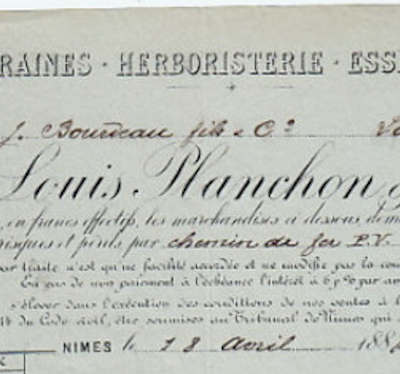 RAINES · HERBORISTERIE · ESS
J. Bourdeau fils & Cº
Louis Planchon
, en francs effectifs, les marchandises ci dessous, dém
risques et périls par chemin de fer P.V.
par traite n'est qu'une facilité accordée et ne modifie pas la con
En cas de non paiement à l'échéance l'intérêt à 6 p% par an
s'élever dans l'exécution des conditions de nos ventes à l
du Code civil, être soumises au Tribunal de Nimes qui
NIMES le 18 Avril 188